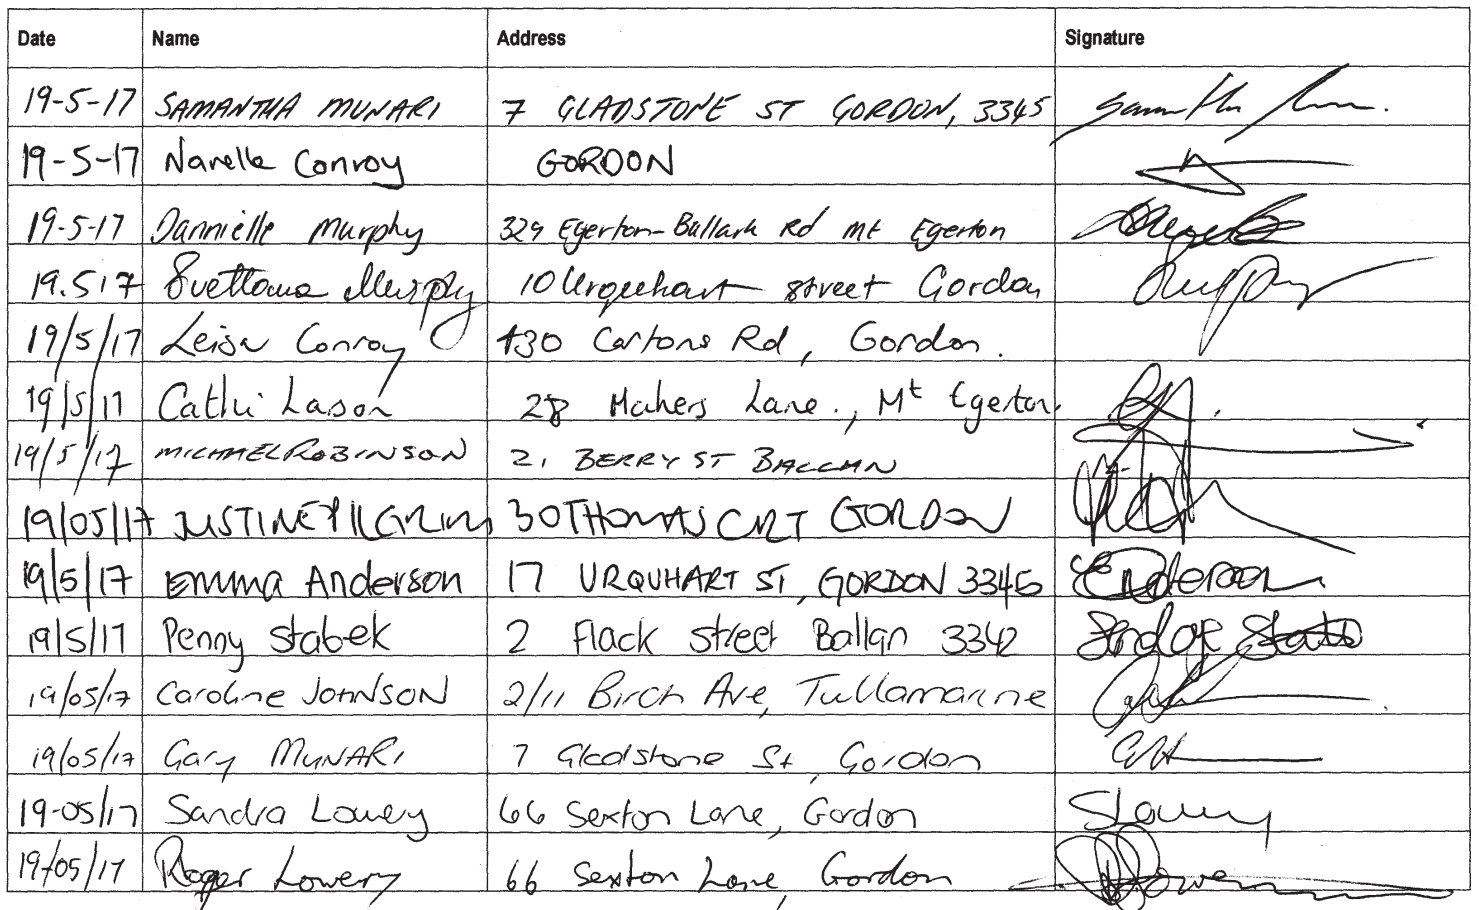 Date Name Address Signature
19-5-17 SAMANTHA MUNARI 7 GLADSTONE ST GORDON, 3345
19-5-17 Narelle Conroy GORDON
19-5-17 Dannielle Murphy 329 Egerton-Ballark Rd Mt Egerton
19.5 17 Svetlana Murphy 10 Urquehart street Gordon
19/5/17 Leisa Conroy 430 Cartons Rd, Gordon.
19/5/17 Cathi Lason 28 Mahers Lane., Mt Egerton.
19/5/17 MICHAEL ROBINSON 21 BERRY ST BALLAN
19/05/17 JUSTINE PILGRIM 30 THOMAS CRT GORDON
19/5/17 Emma Anderson 17 URQUHART ST, GORDON 3345
19/5/17 Penny Stabek 2 Flack street Ballan 3342
19/05/17 Caroline JOHNSON 2/11 Birch Ave, Tullamarine
19/05/17 Gary MUNARI 7 Gladstone St, Gordon
19-05/17 Sandra Lowery 66 Sexton Lane, Gordon SLowery
19/05/17 Roger Lowery 66 Sexton Lane, Gordon